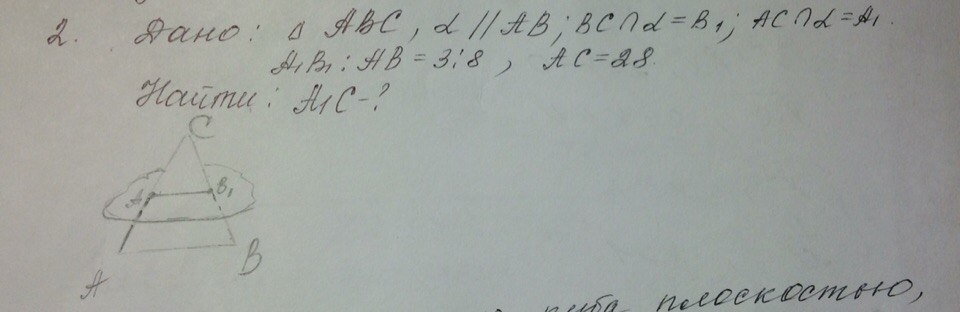 2. Дано: Δ ABC, α // AB; BC∩α = B₁; AC∩α = A₁.
A₁B₁ : AB = 3:8, AC = 28.
Найти: A₁C - ?
C
A₁ B₁
A B
плоскостью,